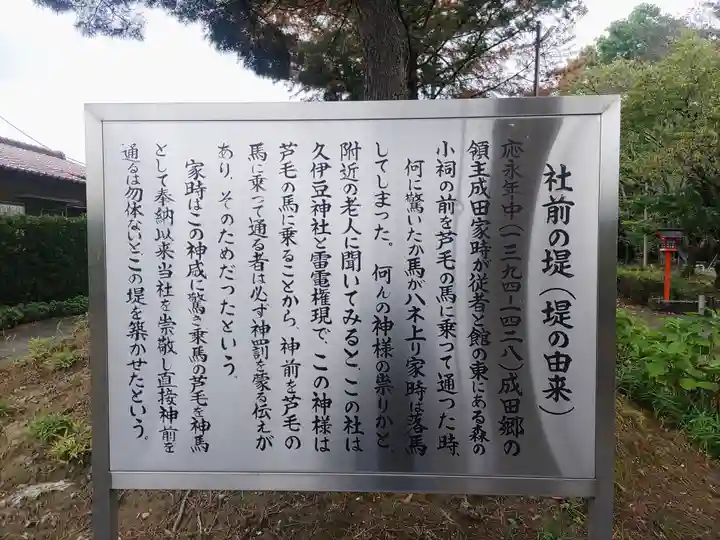 社前の堤(堤の由来)
応永年中(一三九四ー一四二八)成田郷の
領主成田家時が従者と館の東にある森の
小祠の前を芦毛の馬に乗って通つた時、
何に驚いたか馬がハネ上り家時は落馬
してしまった。何んの神様の祟りかと、
附近の老人に聞いてみると、この社は
久伊豆神社と雷電権現で、この神様は
芦毛の馬に乗ることから、神前を芦毛の
馬に乗って通る者は必ず神罰を蒙る伝えが
あり、そのためだったという。
家時はこの神威に驚き乗馬の芦毛を神馬
として奉納以来当社を崇敬し直接神前を
通るは勿体ないとこの堤を築かせたという。